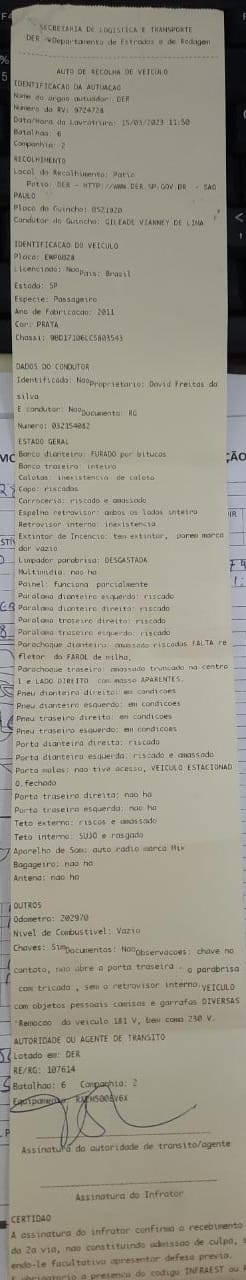 SECRETARIA DE LOGISTICA E TRANSPORTE
DER - Departamento de Estradas e de Rodagem
AUTO DE RECOLHA DE VEICULO
IDENTIFICACAO DA AUTUACAO
Nome do orgao autuador: DER
Numero da RV: 9724728
Data/Hora da Lavratura: 15/03/2023 11:50
Batalhao: 6
Companhia: 2
RECOLHIMENTO
Local do Recolhimento: Patio
Patio: DER - HTTP://WWW.DER.SP.GOV.BR - SAO
PAULO
Placa do Guincho: BSZ1920
Condutor do Guincho: GILEADE VIANNEY DE LIMA
IDENTIFICACAO DO VEICULO
Placa: EWP6028
Licenciado: Nao Pais: Brasil
Estado: SP
Especie: Passageiro
Ano de Fabricacao: 2011
Cor: PRATA
Chassi: 9BD17106LC5803543
DADOS DO CONDUTOR
Identificado: Nao Proprietario: David Freitas da
silva
E condutor: Nao Documento: RG
Numero: 032154082
ESTADO GERAL
Banco dianteiro: FURADO por bitucas
Banco traseiro: inteiro
Calotas: inexistencia de calota
Capo: riscados
Carroceria: riscado e amassado
Espelho retrovisor: ambos os lados inteiro
Retrovisor interno: inexistencia
Extintor de Incencio: tem extintor, porem marca
dor vazio
Limpador parabrisa: DESGASTADA
Multimidia: nao ha
Painel: funciona parcialmente
Paralama dianteiro esquerdo: riscado
Paralama dianteiro direito: riscado
Paralama traseiro direito: riscado
Paralama traseiro esquerdo: riscado
Parachoque dianteiro: amassado riscados FALTA re
fletor do FAROL de milha,
Parachoque traseiro: amassado truncado na centro
l e LADO DIREITO com massa APARENTES.
Pneu dianteiro direito: em condicoes
Pneu dianteiro esquerdo: em condicoes
Pneu traseiro direito: em condicoes
Pneu traseiro esquerdo: em condicoes
Porta dianteira direita: riscado
Porta dianteira esquerda: riscado e amassado
Porta malas: nao tive acesso, VEICULO ESTACIONAD
O.fechado
Porta traseira direita: nao ha
Porta traseira esquerda: nao ha
Teto externo: riscos e amassado
Teto interno: SUJO e rasgado
Aparelho de Som: auto radio marca Mix
Bagageiro: nao ha
Antena: nao ha
OUTROS
Odometro: 202970
Nivel de Combustivel: Vazio
Chaves: Sim Documentos: Nao Observacoes: chave no
contato, nao abre a porta traseira . o parabrisa
com tricado , sem o retrovisor interno.VEICULO
com objetos pessoais camisas e garrafas DIVERSAS
Remocao do veiculo 181 V, bem como 230 V.
AUTORIDADE OU AGENTE DE TRANSITO
Lotado em: DER
RE/RG: 107614
Batalhao: 6 Companhia: 2
Equipamento:
Assinatura da autoridade de transito/agente
Assinatura do Infrator
CERTIDAO
A assinatura do infrator confirma o recebimento
da 2a via, nao constituindo admissao de culpa, s
endo-lhe facultativa apresentar defesa previa.
obrigatorio a presenca do codigo INFRAEST ou